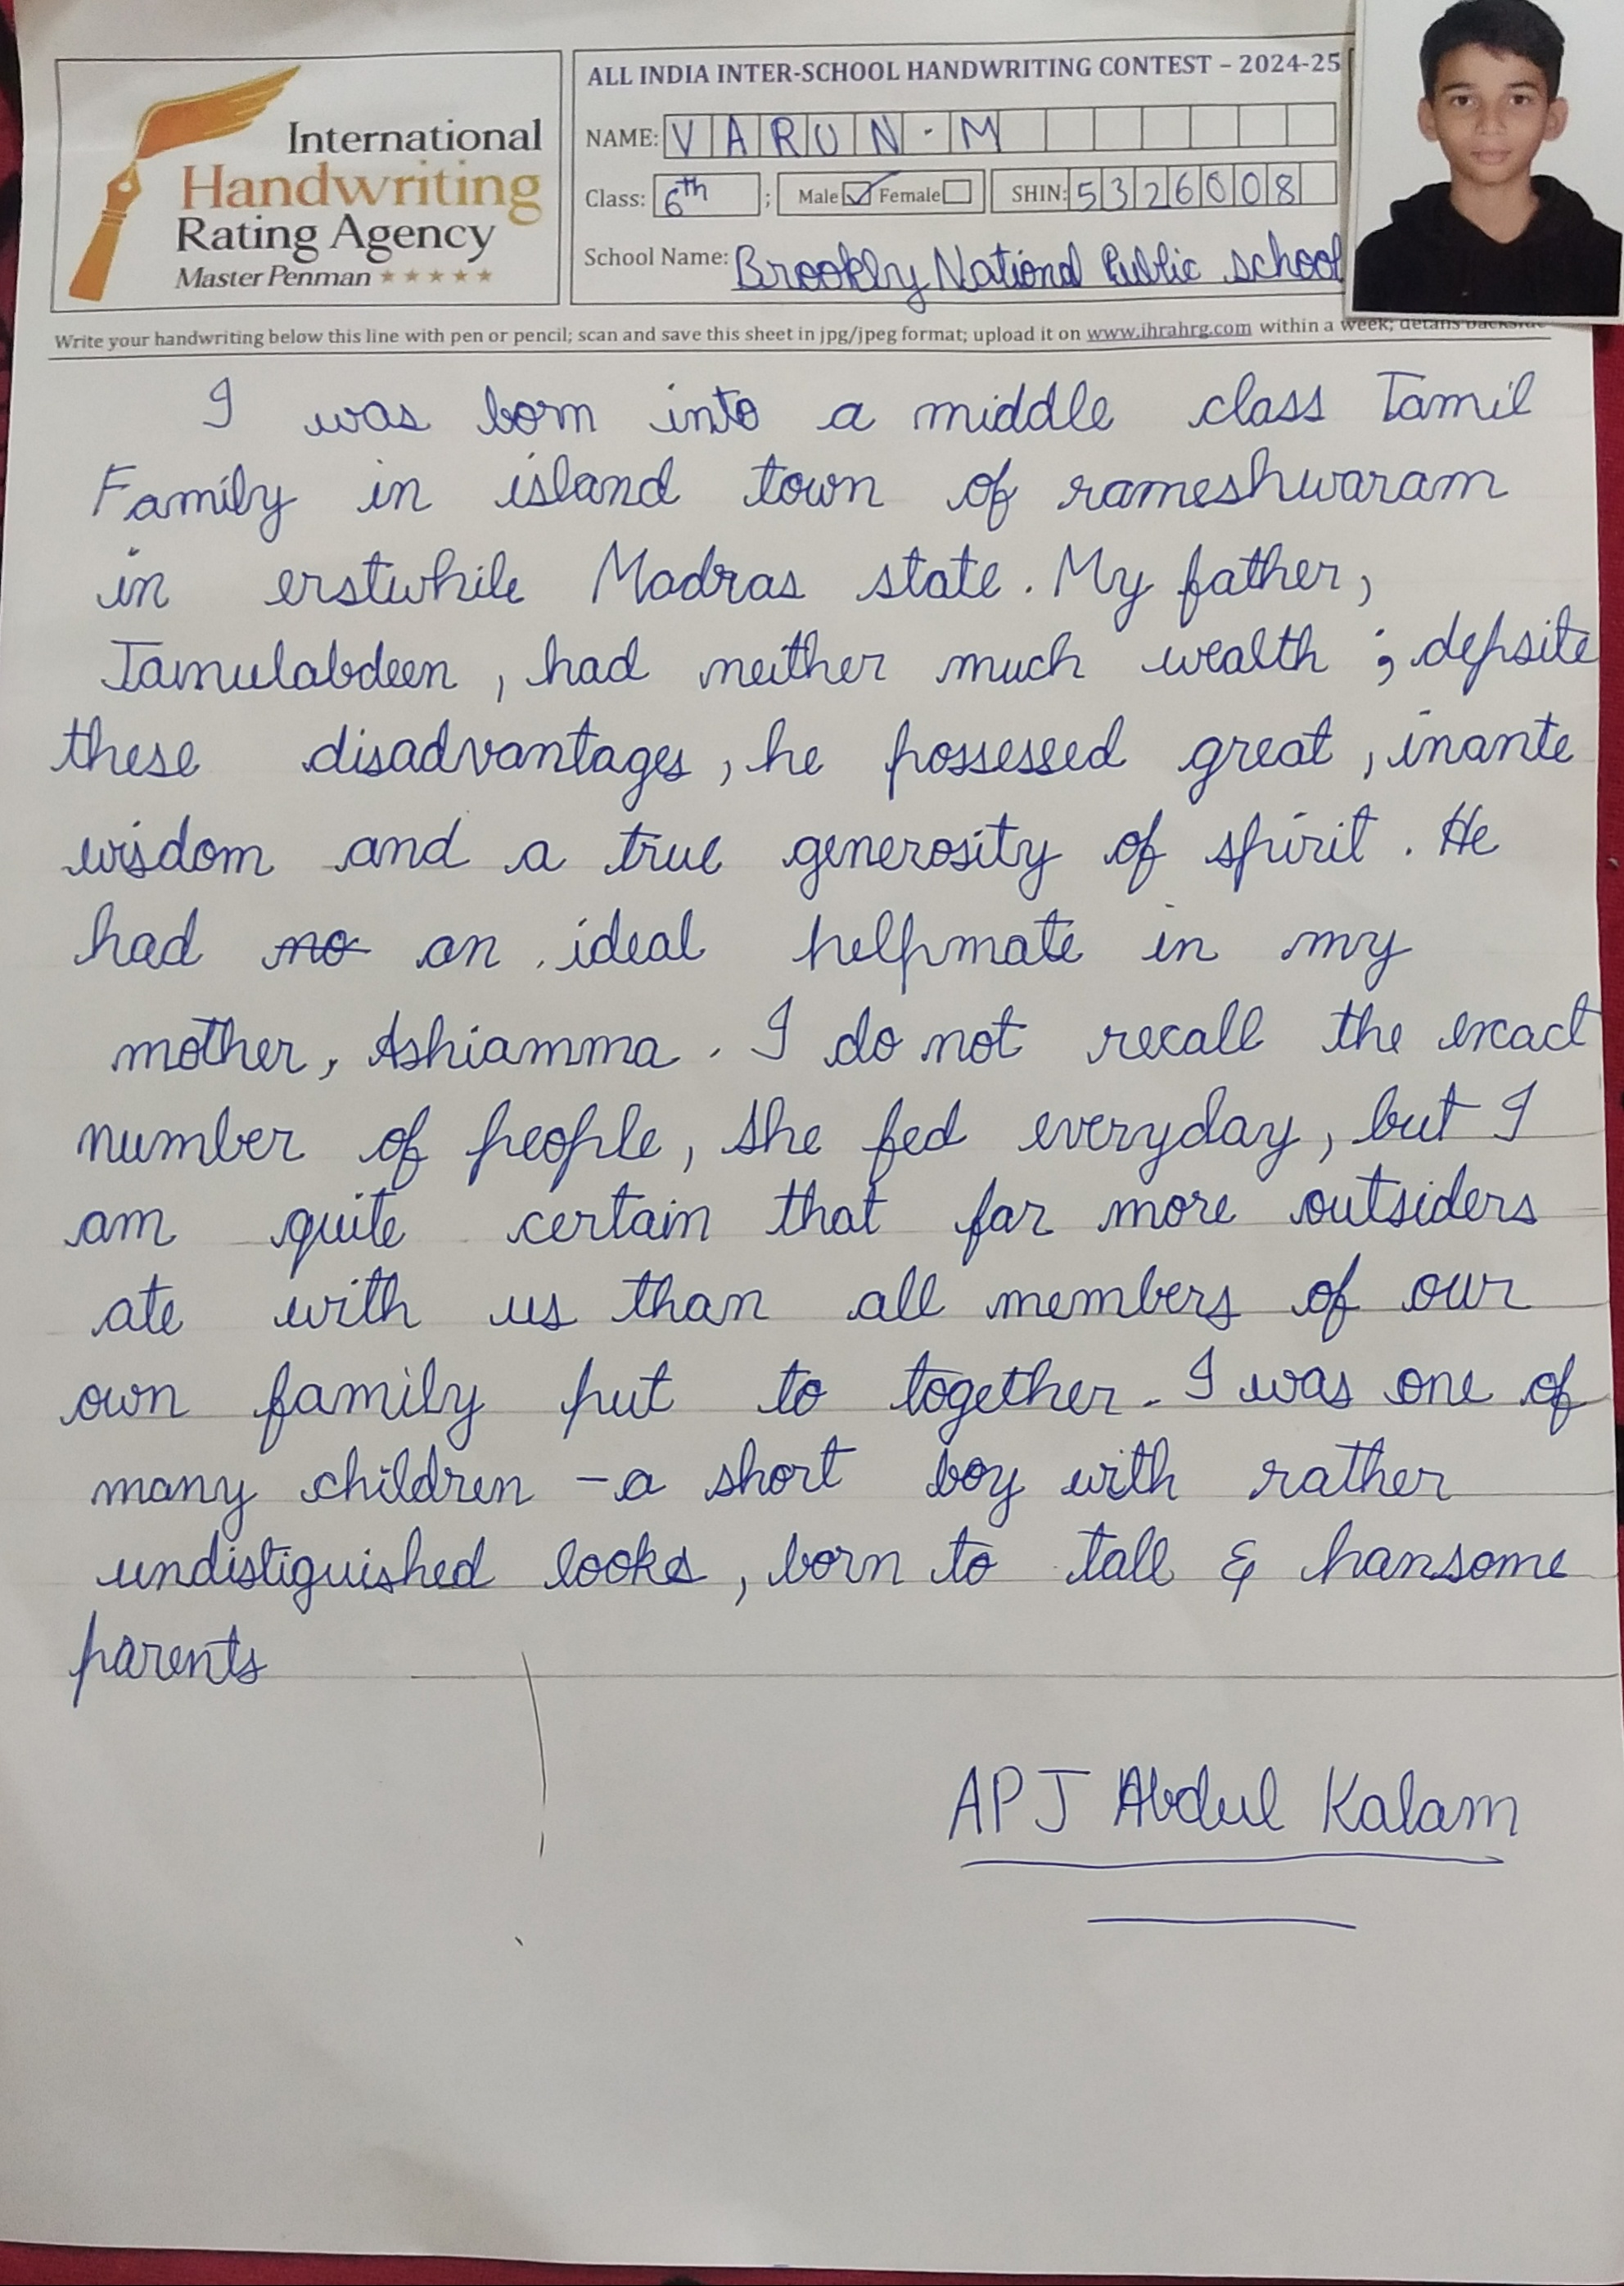 International
Handwriting
Rating Agency
Master Penman ★★★★★
ALL INDIA INTER-SCHOOL HANDWRITING CONTEST – 2024-25
NAME: VARUN·M
Class: 6th ; Male ☑ Female ☐ SHIN: 5326008
School Name: Brookly National Public school
Write your handwriting below this line with pen or pencil; scan and save this sheet in jpg/jpeg format; upload it on www.ihrahrg.com within a week; details backside
I was born into a middle class Tamil
Family in island town of rameshwaram
in erstwhile Madras state. My father,
Jamulabdeen, had neither much wealth ; depsite
these disadvantages, he possessed great, inante
wisdom and a true generosity of spirit. He
had no an ideal helpmate in my
mother, Ashiamma. I do not recall the exact
number of people, she fed everyday, but I
am quite certain that far more outsiders
ate with us than all members of our
own family put to together. I was one of
many children – a short boy with rather
undistiguished looks, born to tall & hansome
parents
APJ Abdul Kalam